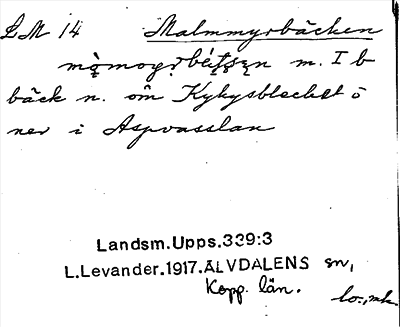 LM 14 Malmmyrbäcken
m. I b
bäck n. om Kykysblecket o
ner i Aspvasslan
Landsm.Upps.339:3
L.Levander.1917.ÄLVDALENS sn,
Kopp. län.